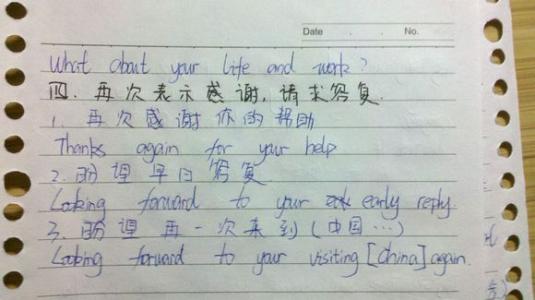 Date No.
What about your life and work?
四.再次表示感谢,请求答复.
1. 再次感谢你的帮助
Thanks again for your help
2.盼望早日答复
Looking forward to your early reply.
3.盼望再一次来到(中国…)
Looking forward to your visiting [China] again.